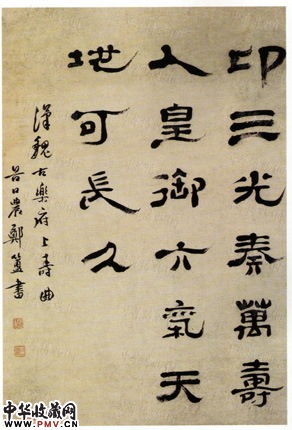 卬三光奏萬壽
人皇御六氣天
地可長久
漢魏古樂府上壽曲
谷口農鄭簠書
中华收藏网
www.PMV.CN